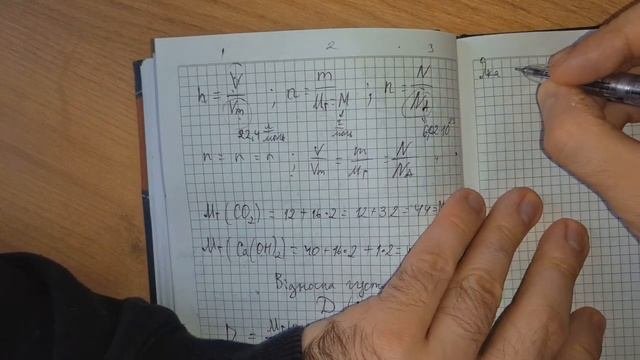 1 2 3
n = V/Vm ; n = m/Mr=M ; n = N/NA
22,4 л/моль г/моль 6,02·10²³
n = n = n ; V/Vm = m/Mr = N/NA
Mr(CO₂) = 12 + 16·2 = 12 + 32 = 44
Mr(Ca(OH)₂) = 40 + 16·2 + 1·2 =
Відносна густ
D
D =
Яка